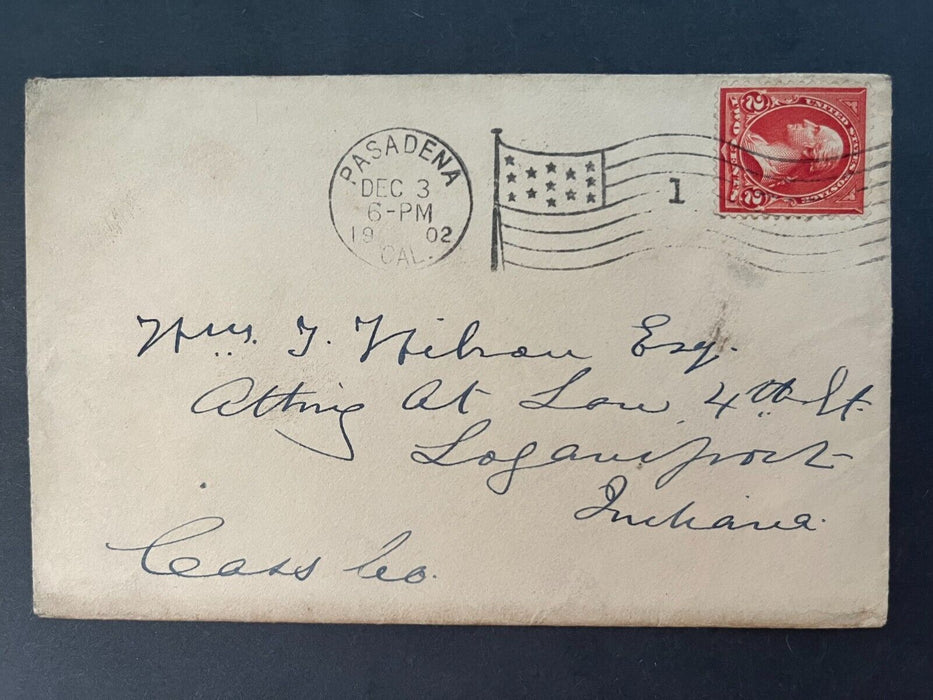 PASADENA
DEC 3
6-PM
1902
CAL.
1
UNITED STATES POSTAGE
TWO CENTS
2 2
Wm. T. Wilson Esq.
Atting At Law 4th St.
Logansport
Indiana.
Cass Co.